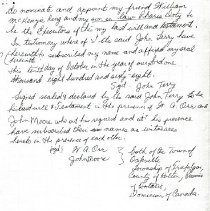 do nominate and appoint my friend William
McKenzie King and my son in law Charles Early to
be the Executors of my last will and testament.
In testimony whereof I the said John Terry have
hereunto subscribed my name and affixed my seal
this first day of October in the year of our Lord one
thousand eight hundred and sixty-eight.
Sgd John Terry
Signed sealed declared by the said John Terry to be
his last will & testament in the presence of W. A. Orr and
John Moore who at his request and at his presence
have subscribed their own names as witnesses
hereto in the presence of each other.
Sgd W. A. Orr
John Moore
both of the Town of
Oakville
Township of Trafalgar,
County of Halton, Province
of Ontario,
Dominion of Canada.